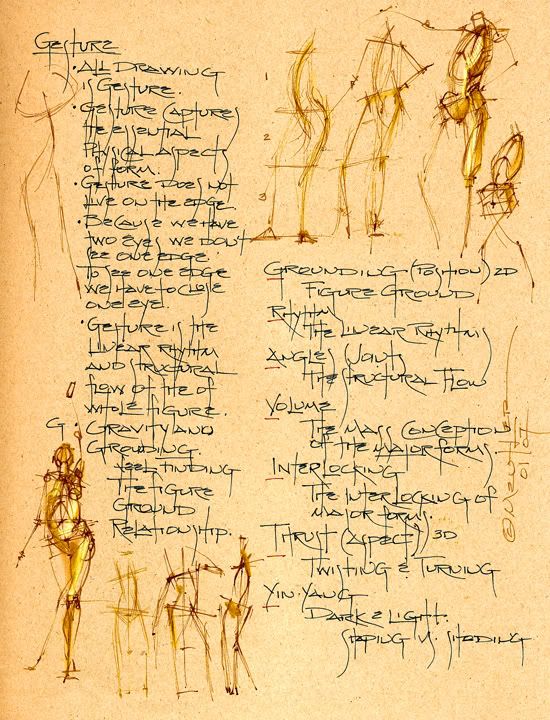 Gesture
• All Drawing
is Gesture.
• Gesture Captures
the essential
Physical Aspects
of form.
• Gesture Does not
live on the edge.
• Because we have
two eyes we don't
see one edge
to see one edge
we have to close
one eye.
• Gesture is the
Linear Rhythm
and structural
flow of the of
whole figure.
G • Gravity and
Grounding.
Feel Finding
The figure
Ground
Relationship.
1
2
3
Grounding (Position) 2D
Figure Ground
Rhythm
The Linear Rhythms
Angles/Joints
The Structural Flow
Volume
The Mass Conception
of the major forms.
Interlocking
The Interlocking of
major forms.
Thrust (Aspect) 3D
Twisting & Turning
Yin-Yang
Dark & Light.
Shaping vs. Shading
01/07